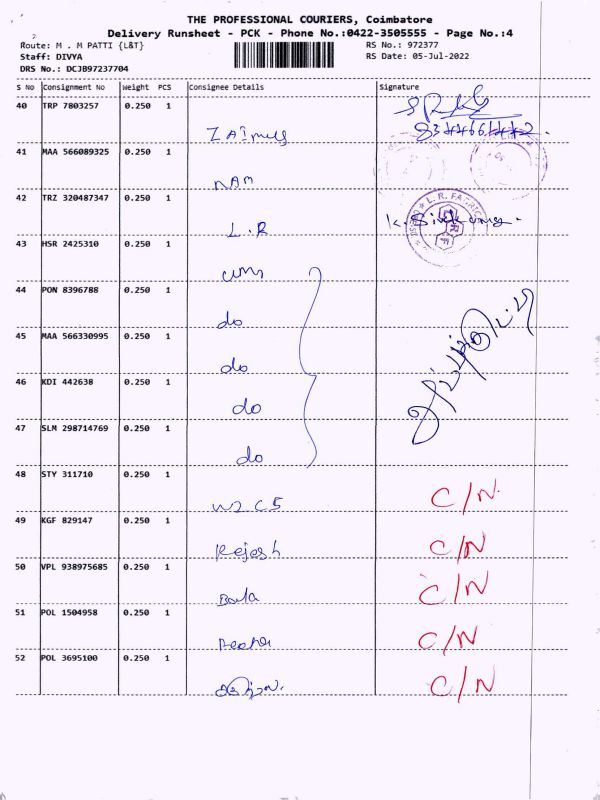 THE PROFESSIONAL COURIERS, Coimbatore
Delivery Runsheet - PCK - Phone No.:0422-3505555 - Page No.:4
Route: M . M PATTI {L&T} RS No.: 972377
Staff: DIVYA RS Date: 05-Jul-2022
DRS No.: DCJB97237704
S No Consignment No Weight PCS Consignee Details Signature
40 TRP 7803257 0.250 1
41 MAA 566089325 0.250 1
NAM
42 TRZ 320487347 0.250 1
L.R
43 HSR 2425310 0.250 1
44 PON 8396788 0.250 1
do
45 MAA 566330995 0.250 1
do
46 KDI 442638 0.250 1
do
47 SLM 298714769 0.250 1
do
48 STY 311710 0.250 1
C/N
49 KGF 829147 0.250 1
Rejesh C/N
50 VPL 938975685 0.250 1
Bala C/N
51 POL 1504958 0.250 1
C/N
52 POL 3695100 0.250 1
C/N